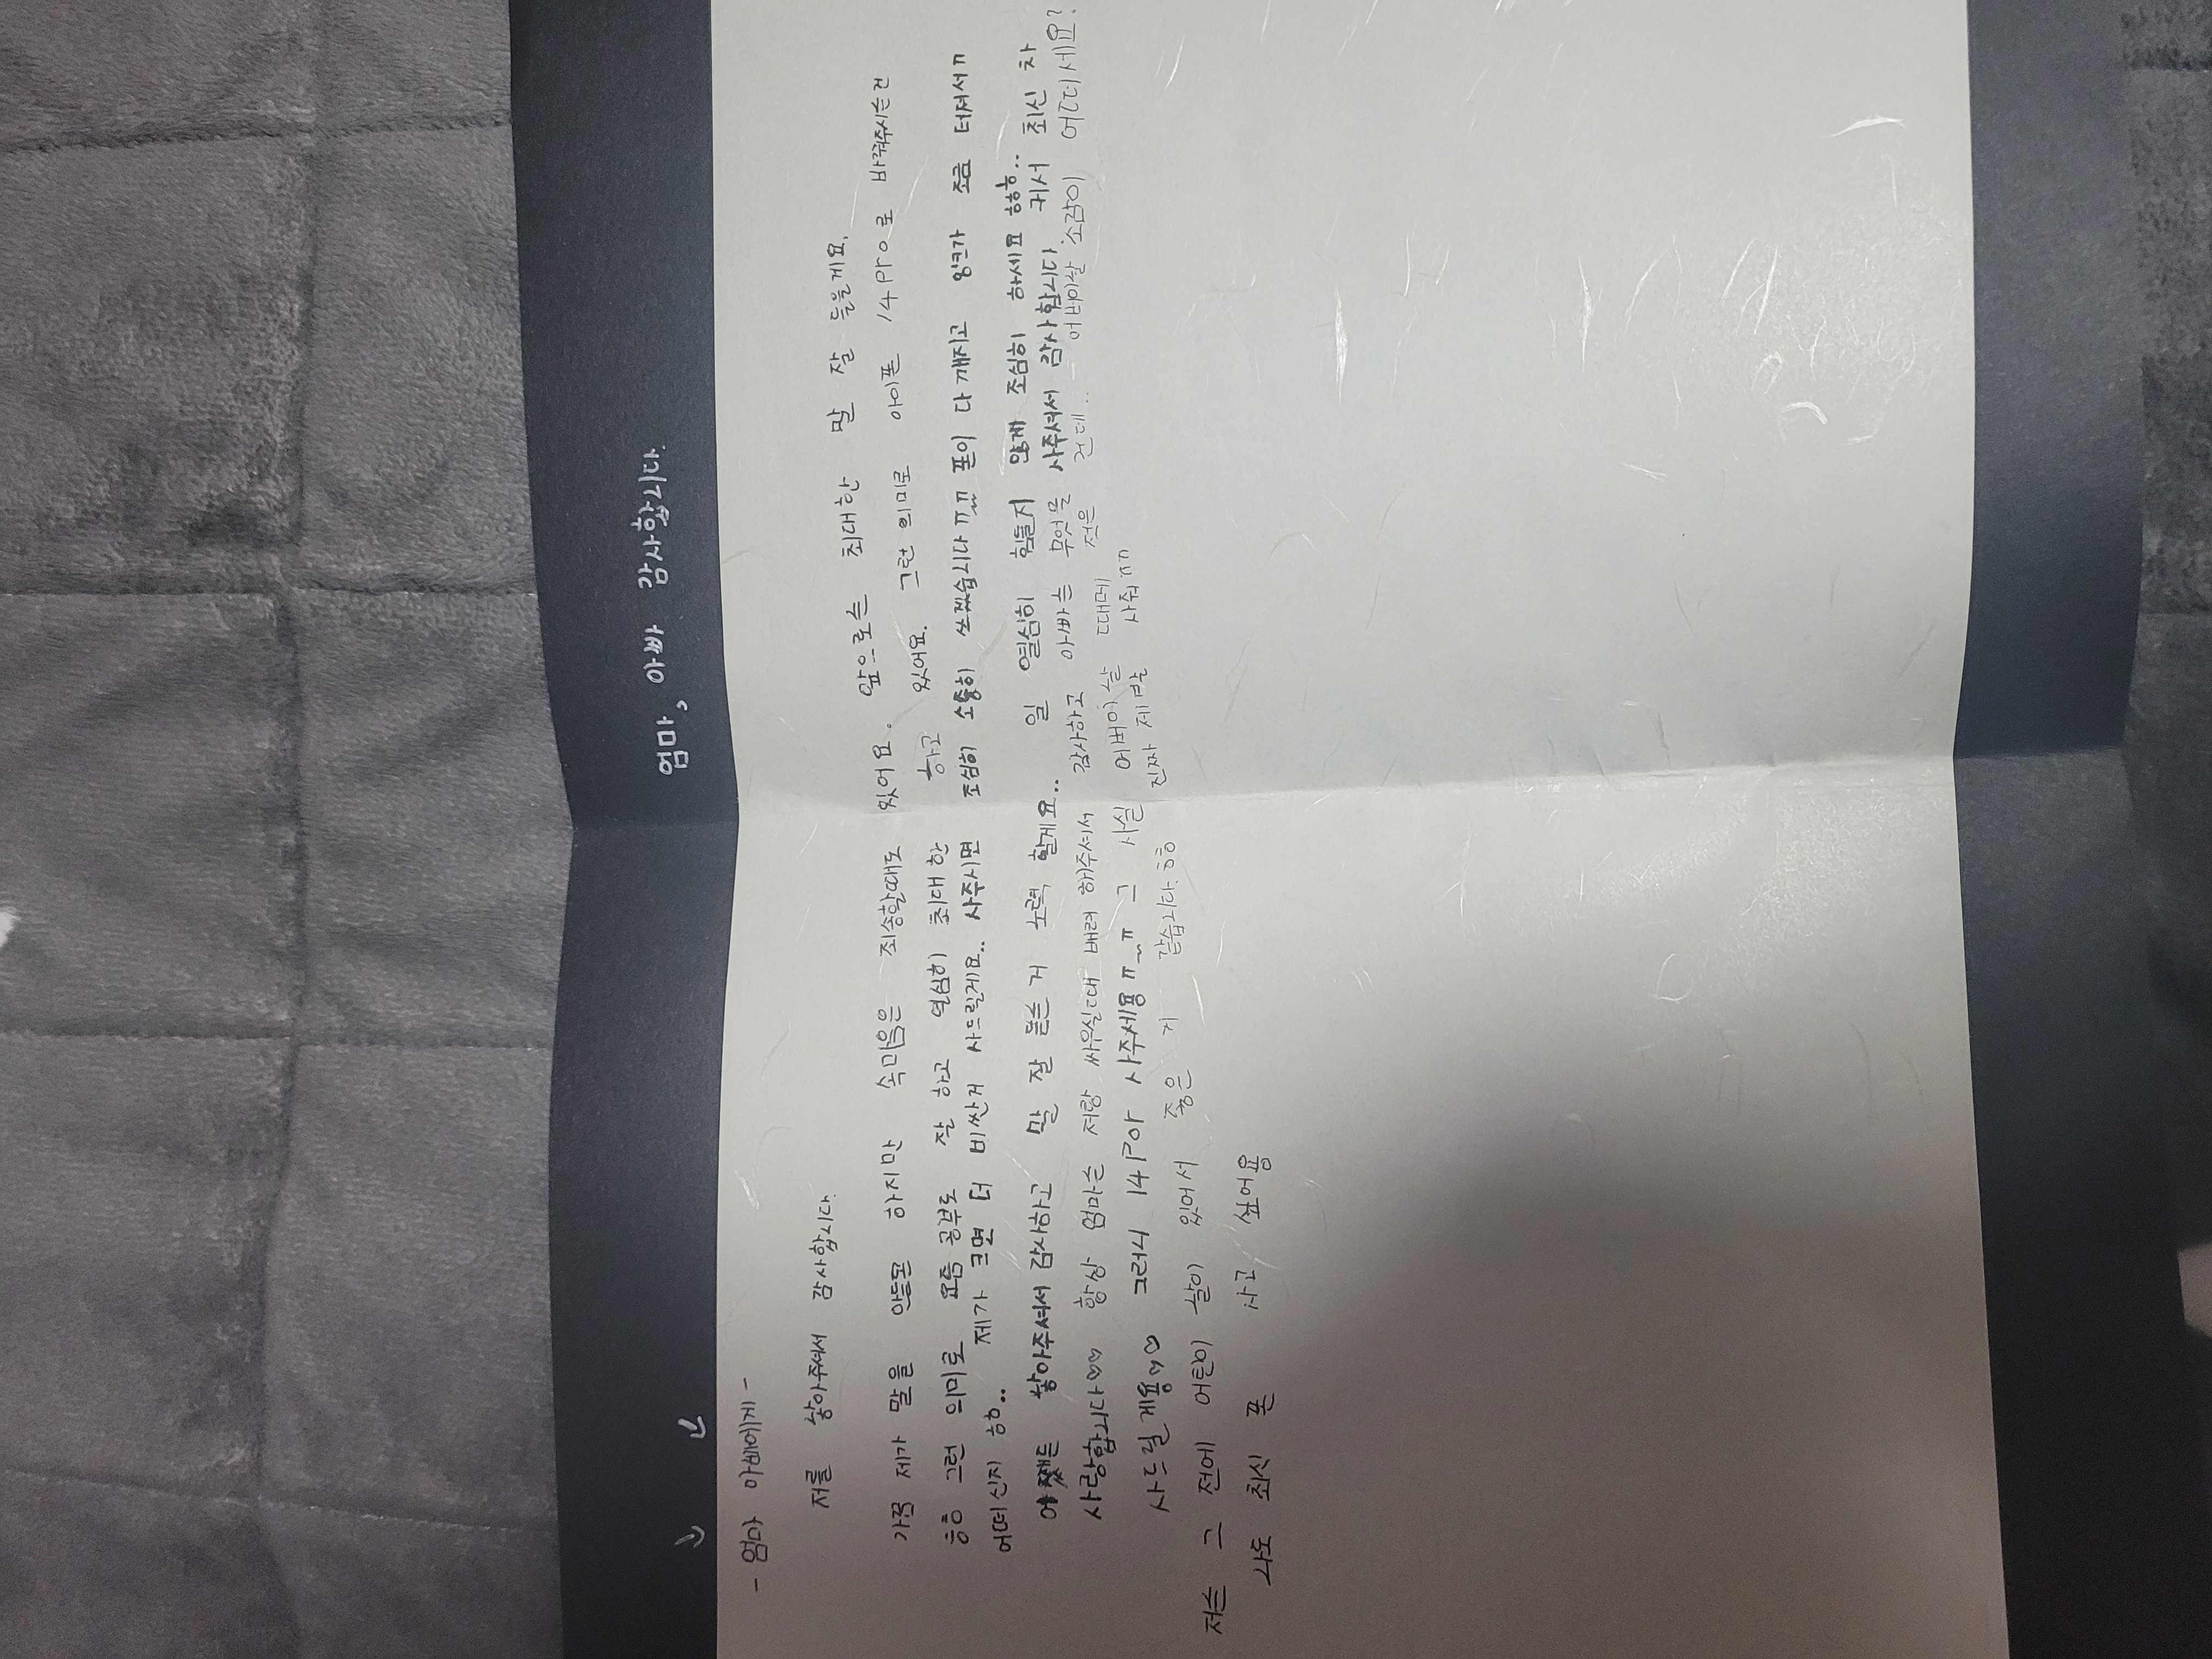 엄마, 아빠 감사합니다.
- 엄마 아빠에게 -
저를 낳아주셔서 감사합니다.
가끔 제가 말을 안들은 하지만 속미음은 죄송할때도 있어요. 앞으로는 최대한 말 잘 들을게요.
흠흠 그런 의미로 요즘 공부도 잘 하고 열심히 최대한 하고 있어요. 그런 의미로 아이폰 14pro로 바꿔주시는건
어떠신지 흠흠.. 제가 크면 더 비싼거 사드릴게요.. 사주시면 조심히 소중히 쓰겠습니다ㅠㅠ 폰이 다 깨지고 잉크가 조금 터져서ㅠ
어쨌든 낳아주셔서 감사하고 말 잘 듣는 거 노력 할게요.. 일 열심히 힘들지 않게 조심히 하세요 흠흠..
사랑합니다♡♡ 항상 엄마는 저랑 싸우실때 배려 해주셔서 감사하고 아빠는 무엇을 사주셔서 감사합니다. 커서 최신 차
사드릴게용♡♡ 그러니 14Por 사주세용ㅠ~ㅠ 그 사실 어버이날 때메 적은 건데.. - 어버이날 소감이 어떠세요?
저는 그 전에 어린이 날이 있어서 좋은 거 같습니다.흠흠 진짜 제발 사줘ㅠㅠ
나도 최신 폰 사고 싶어용